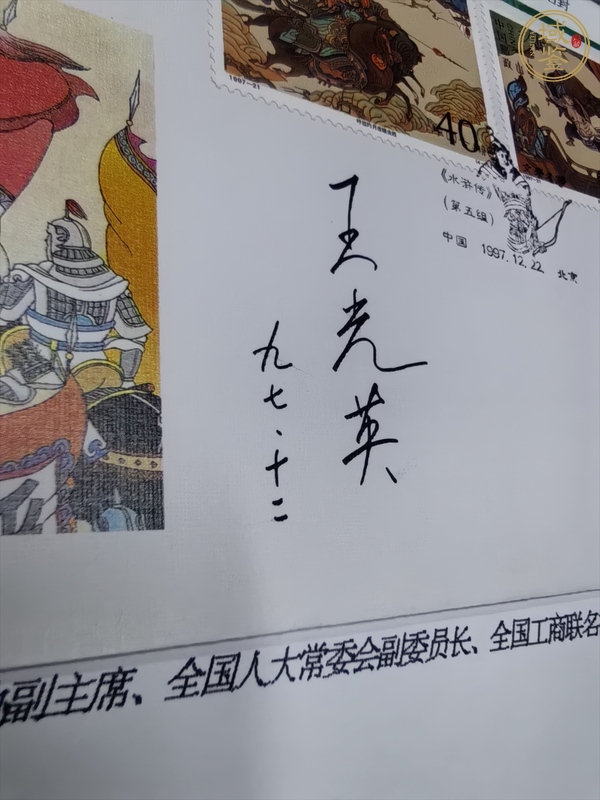 1997-21
40
《水浒传》
（第五组）
中国 1997.12.22 北京
王光英
九七、十二
副主席、全国人大常委会副委员长、全国工商联名